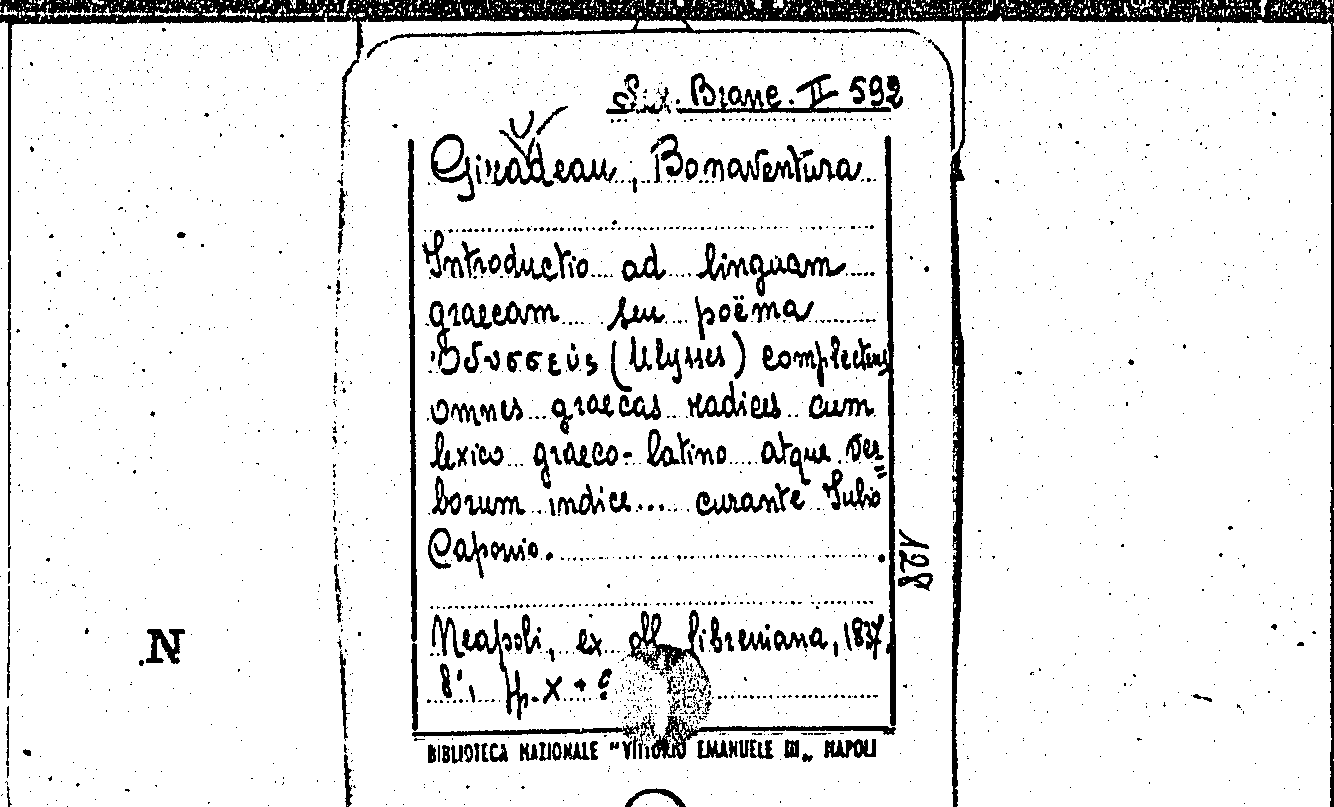 Branc. II 592
Giraudeau, Bonaventura
Introductio ad linguam
graecam seu poëma
Ὀδυσσεύς (Ulysses) complectens
omnes graecas radices cum
lexico graeco-latino atque ver=
borum indice... curante Iulio
Caponio.
128
Neapoli, ex off. libreriana, 1837.
8°, pp. X +
N
BIBLIOTECA NAZIONALE "VITTORIO EMANUELE III„ NAPOLI